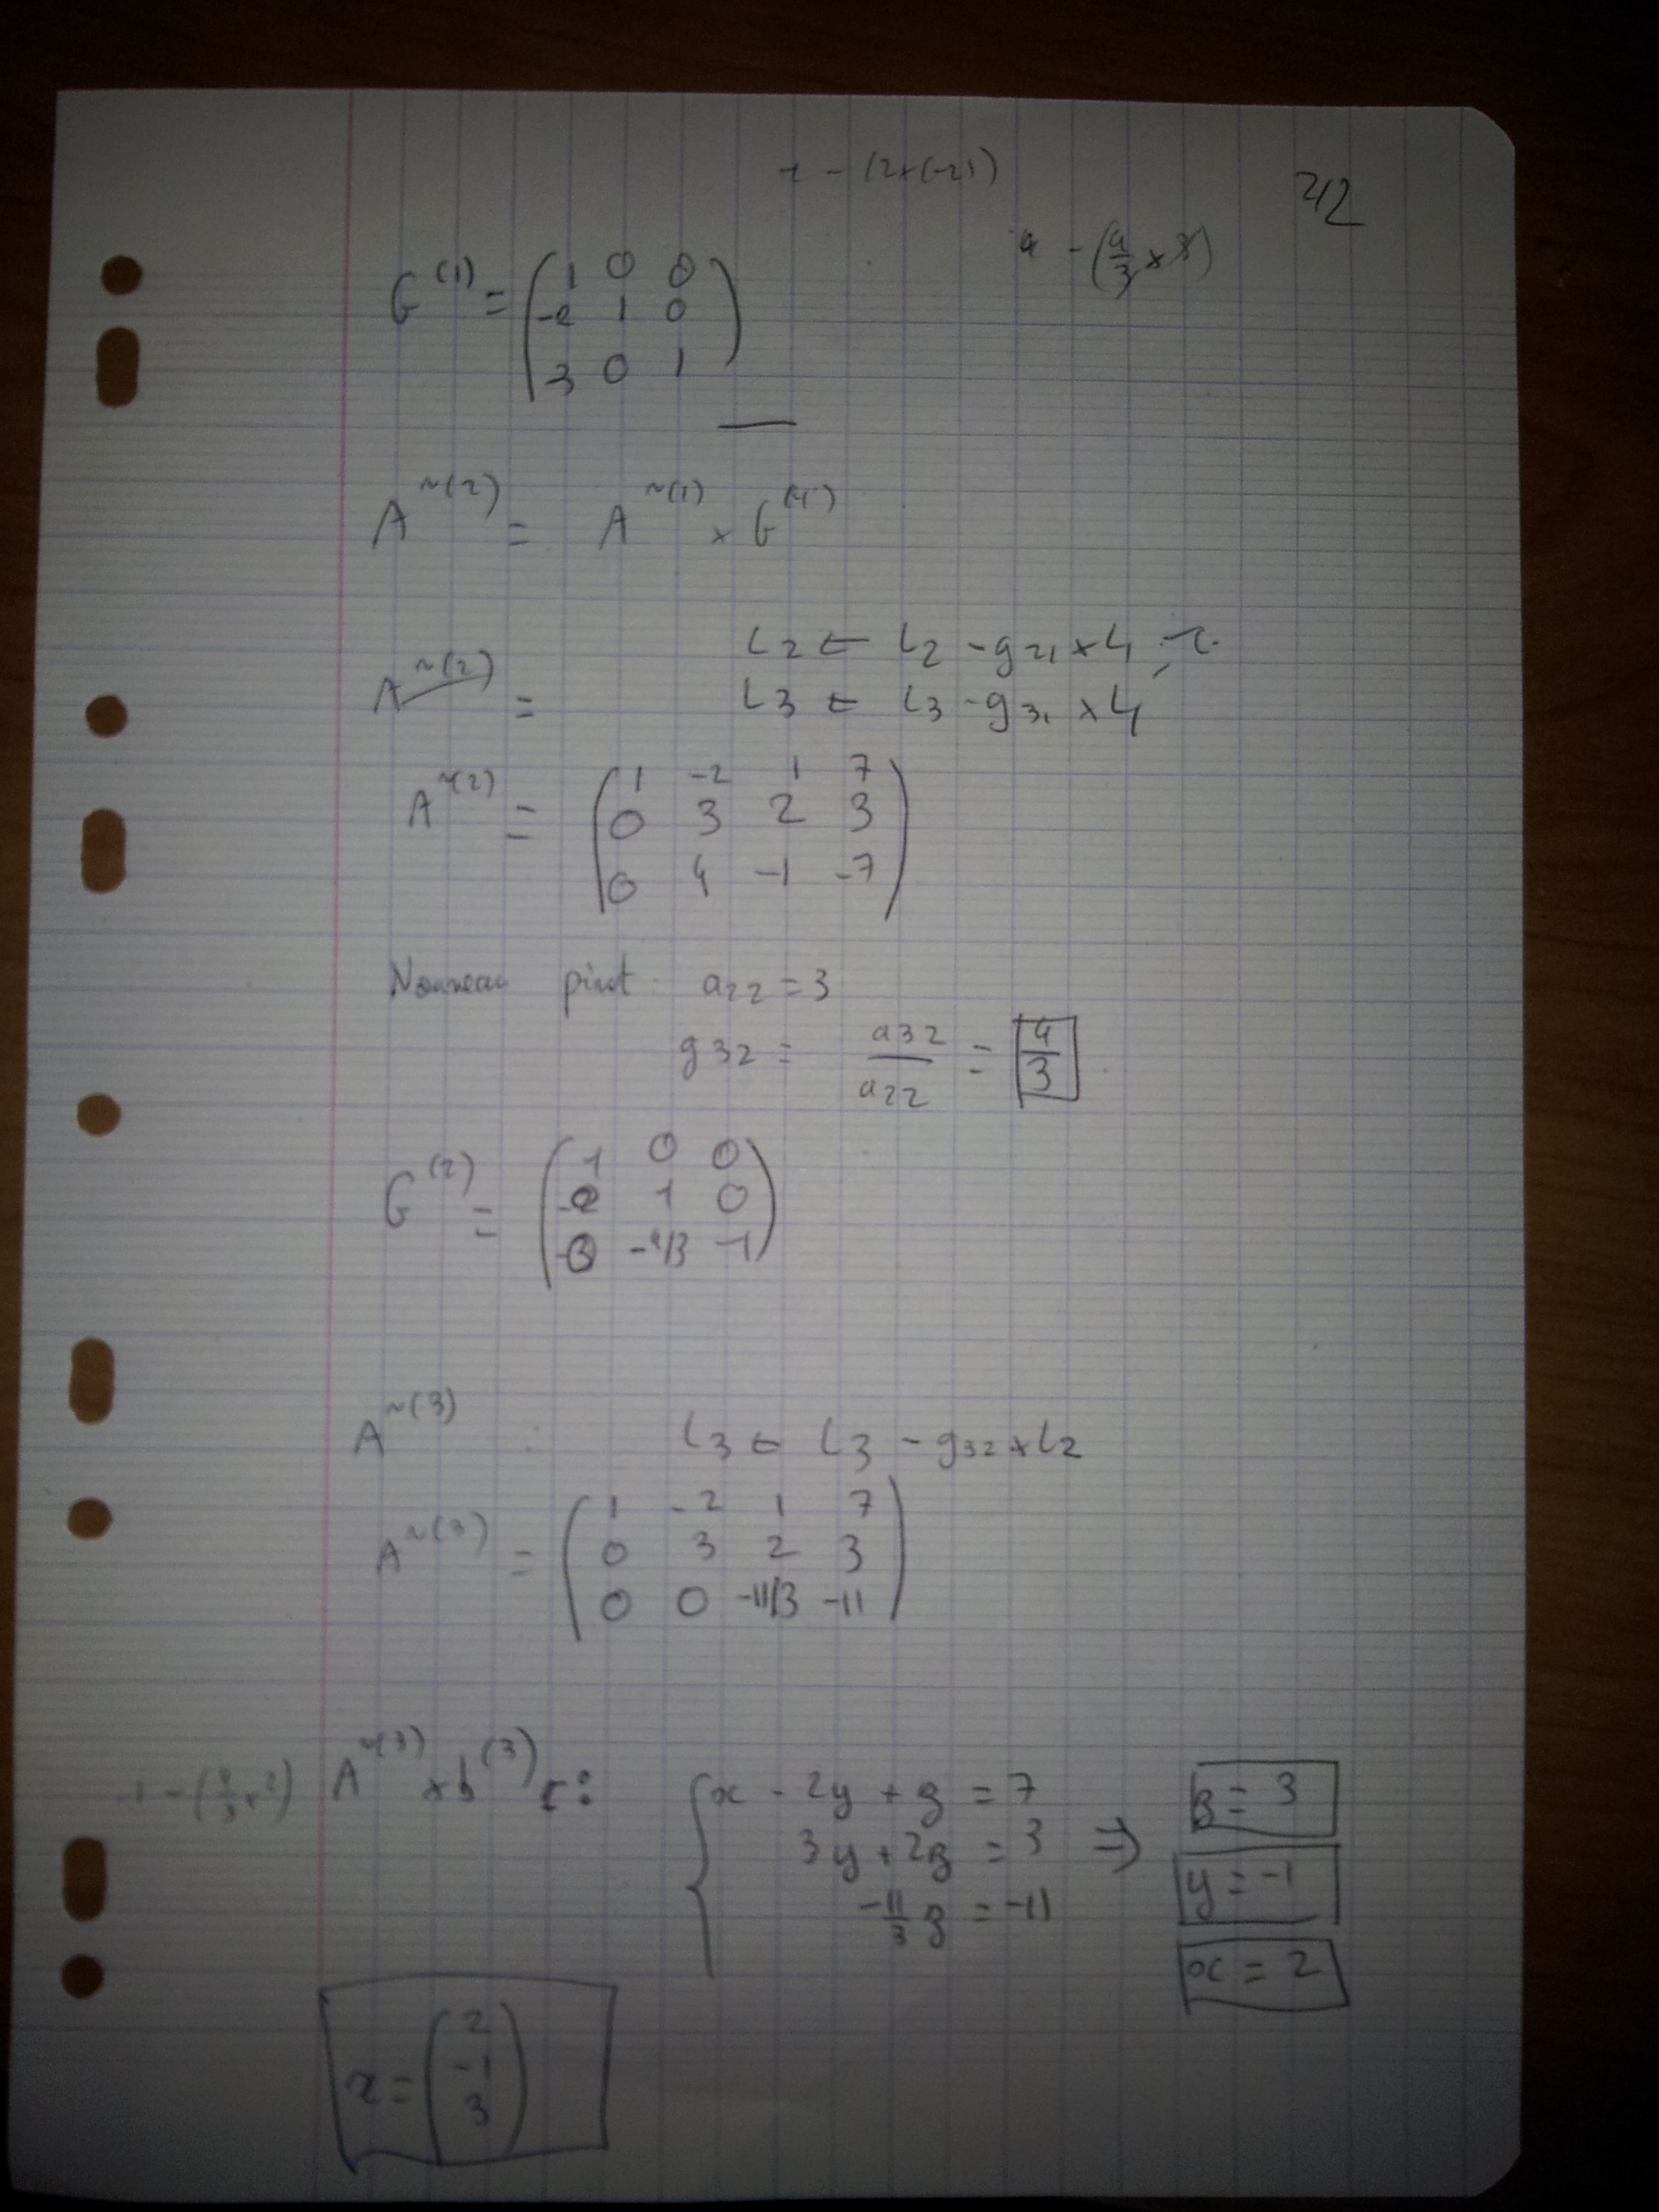 1 - (2×(-2))
2/2
4 - (4/3 × 3)
G^(1) = ( 1 0 0
-2 1 0
3 0 1 )
A^~(2) = A^~(1) × G^(1)
L2 ← L2 - g21 × L1
A^~(2) =
L3 ← L3 - g31 × L1
A^~(2) = ( 1 -2 1 7
0 3 2 3
0 4 -1 -7 )
Nouveau pivot : a22 = 3
g32 = a32/a22 = 4/3
G^(2) = ( 1 0 0
-2 1 0
-3 -4/3 -1 )
A^~(3) : L3 ← L3 - g32 × L2
A^~(3) = ( 1 -2 1 7
0 3 2 3
0 0 -11/3 -11 )
-1 - (4/3 × 2)
A^~(3) × b^(3) :
{ x - 2y + z = 7
3y + 2z = 3 ⇒
-11/3 z = -11
z = 3
y = -1
x = 2
x = ( 2
-1
3 )